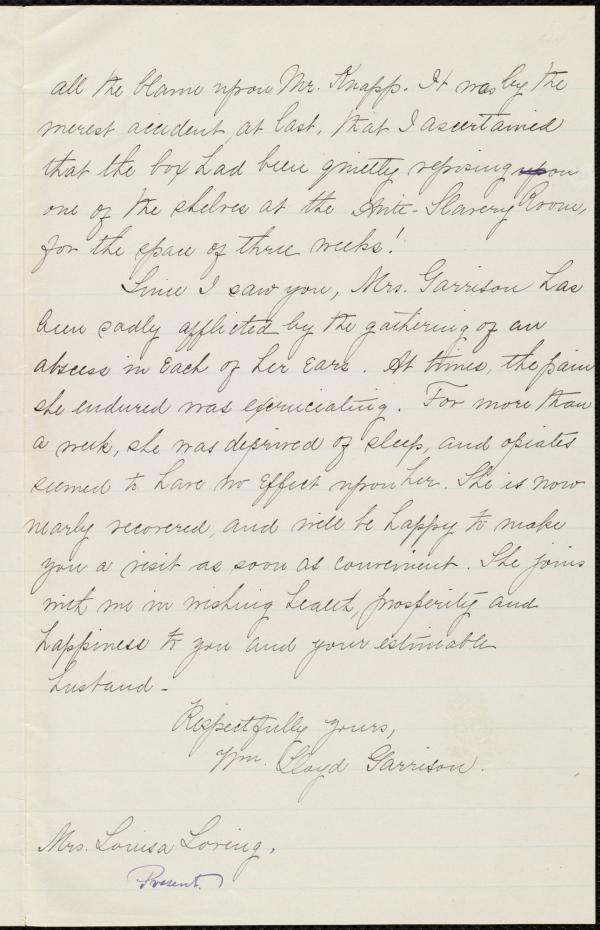 all the blame upon Mr. Knapp. It was by the
merest accident, at last, that I ascertained
that the box had been quietly reposing upon
one of the shelves at the Anti-Slavery Room,
for the space of three weeks!
Since I saw you, Mrs. Garrison has
been sadly afflicted by the gathering of an
abscess in each of her ears. At times, the pain
she endured was excruciating. For more than
a week, she was deprived of sleep, and opiates
seemed to have no effect upon her. She is now
nearly recovered, and will be happy to make
you a visit as soon as convenient. She joins
with me in wishing health, prosperity and
happiness to you and your estimable
husband -
Respectfully yours,
Wm. Lloyd Garrison.
Mrs. Louisa Loring,
Present.